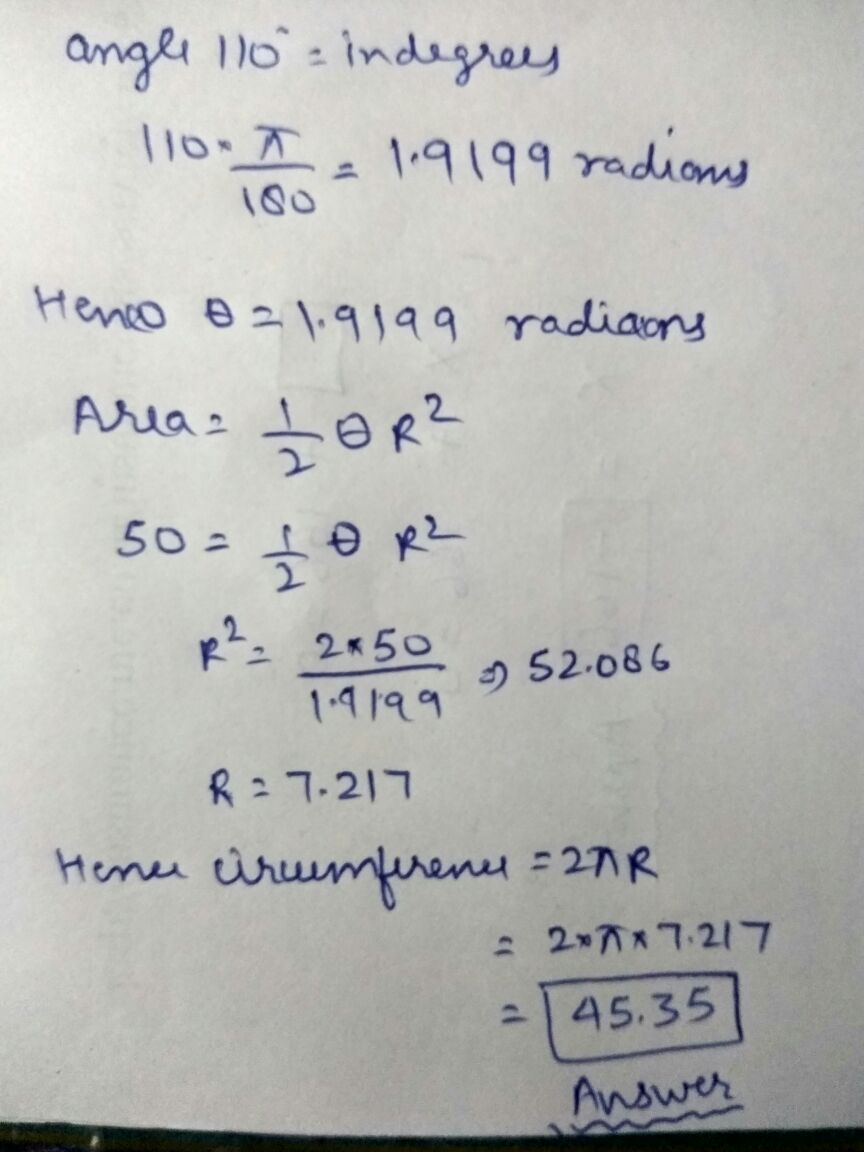 angle 110° = indegrees
110 × π/180 = 1.9199 radians
Hence θ = 1.9199 radiaons
Area = 1/2 θ R²
50 = 1/2 θ R²
R² = 2×50/1.9199 ⇒ 52.086
R = 7.217
Hence circumference = 2πR
= 2×π×7.217
= 45.35
Answer